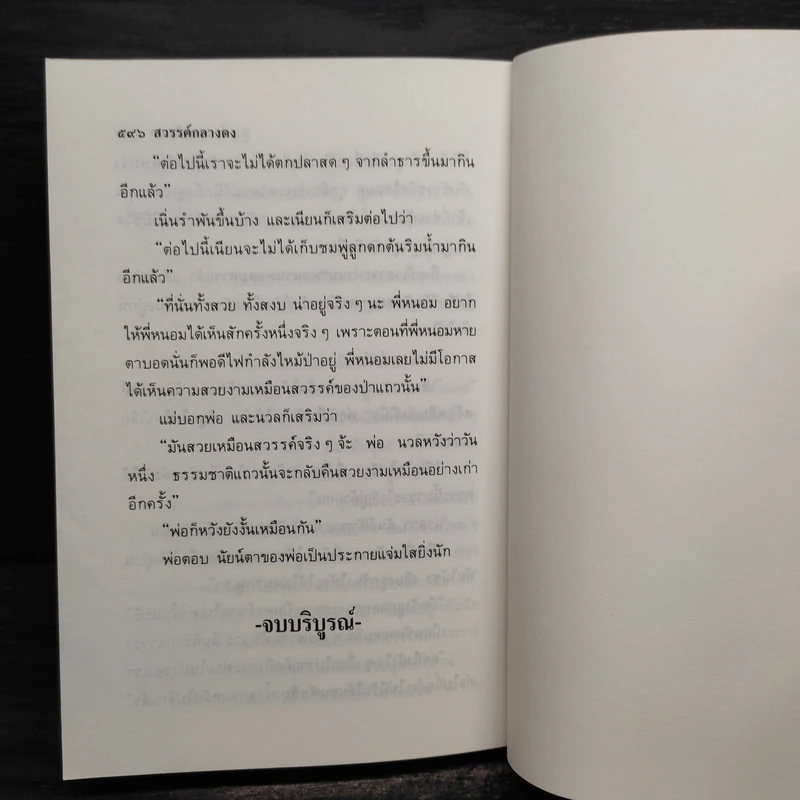 ๕๙๖ สวรรค์กลางดง
“ต่อไปนี้เราจะไม่ได้ตกปลาสด ๆ จากลำธารขึ้นมากิน
อีกแล้ว”
เนิ่นรำพันขึ้นบ้าง และเนียนก็เสริมต่อไปว่า
“ต่อไปนี้เนียนจะไม่ได้เก็บชมพู่ลูกดกต้นริมน้ำมากิน
อีกแล้ว”
“ที่นั่นทั้งสวย ทั้งสงบ น่าอยู่จริง ๆ นะ พี่หนอม อยาก
ให้พี่หนอมได้เห็นสักครั้งหนึ่งจริง ๆ เพราะตอนที่พี่หนอมหาย
ตาบอดนั่นก็พอดีไฟกำลังไหม้ป่าอยู่ พี่หนอมเลยไม่มีโอกาส
ได้เห็นความสวยงามเหมือนสวรรค์ของป่าแถวนั้น”
แม่บอกพ่อ และนวลก็เสริมว่า
“มันสวยเหมือนสวรรค์จริง ๆ จ้ะ พ่อ นวลหวังว่าวัน
หนึ่ง ธรรมชาติแถวนั้นจะกลับคืนสวยงามเหมือนอย่างเก่า
อีกครั้ง”
“พ่อก็หวังยังงั้นเหมือนกัน”
พ่อตอบ นัยน์ตาของพ่อเป็นประกายแจ่มใสยิ่งนัก
-จบบริบูรณ์-